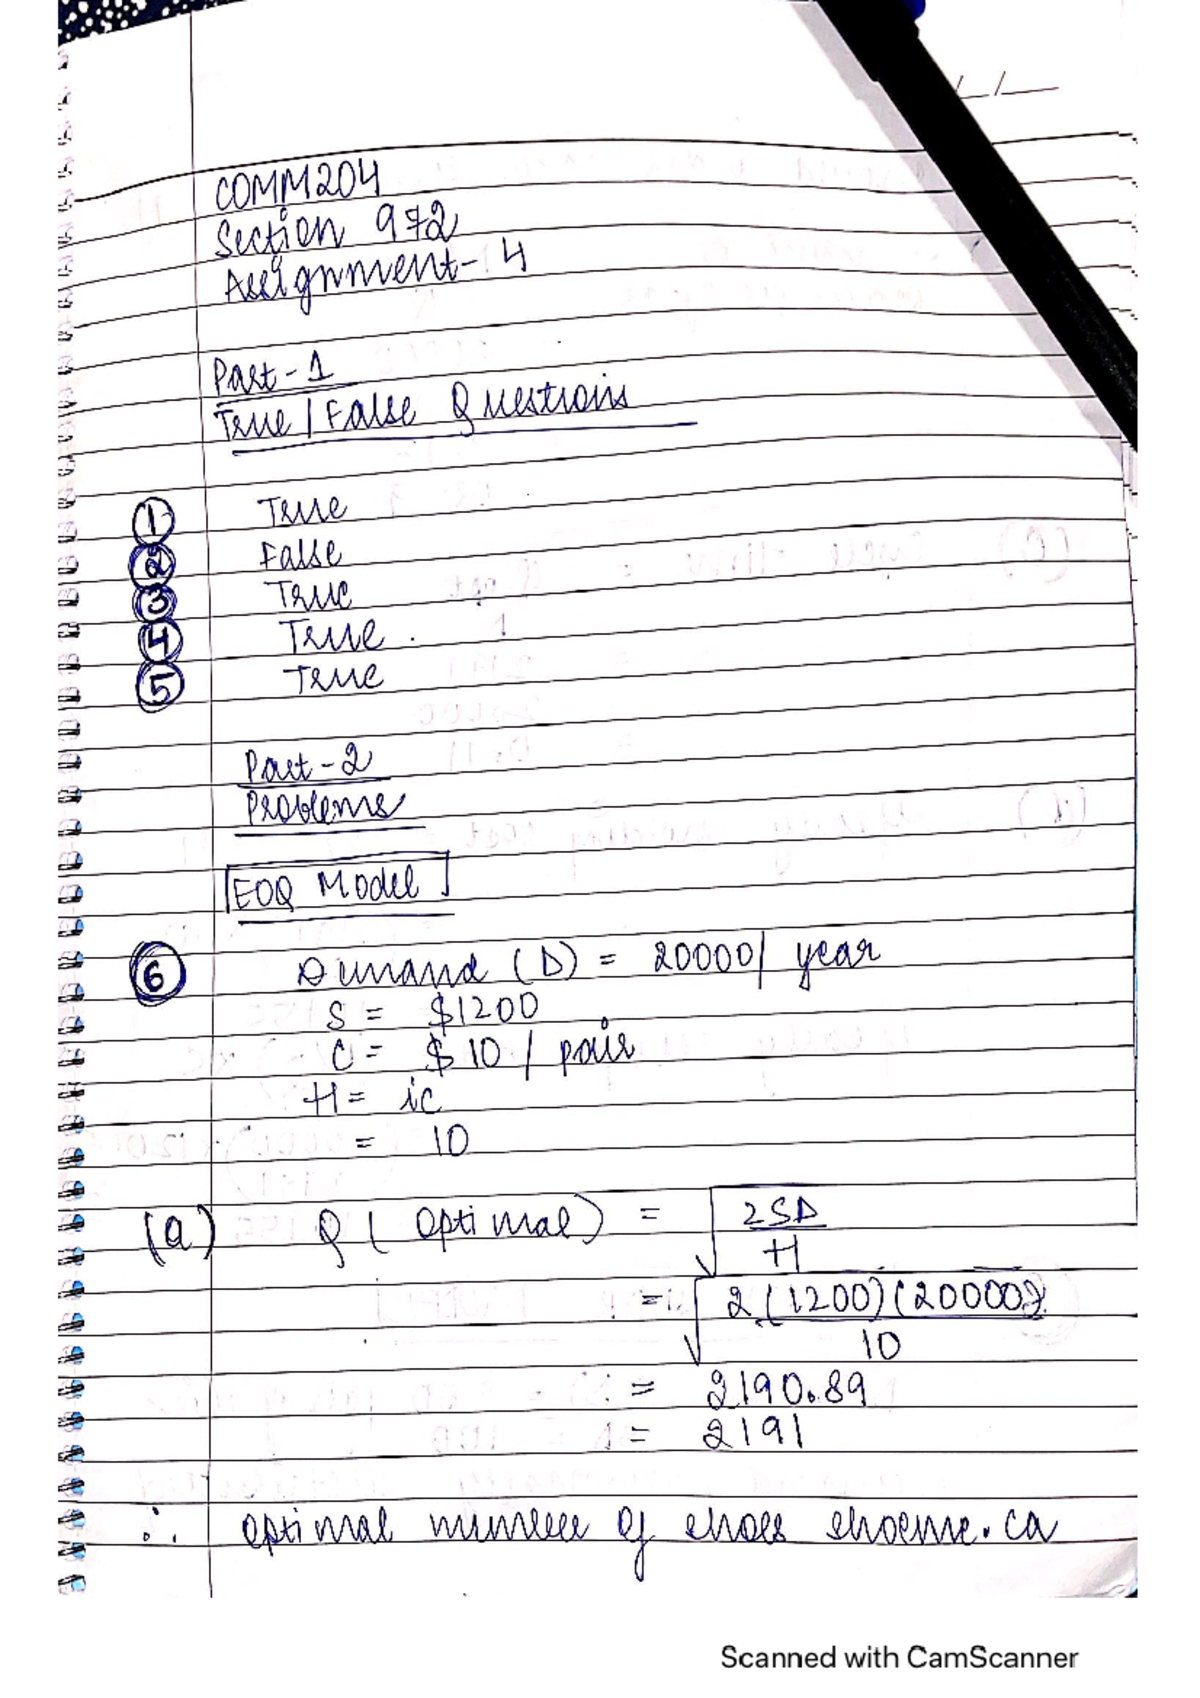 COMM204
Section 972
Assignment-4
Part-1
True/False Questions
1 True
2 False
3 True
4 True.
5 True
Part-2
Problems
EOQ Model
6 Demand (D) = 20000/ year
S = $1200
C = $10 / pair
H = ic
= 10
(a) Q (optimal) = √2SD/H
= √2(1200)(20000)/10
= 2190.89
= 2191
∴ optimal number of shoes shoeme.ca
Scanned with CamScanner